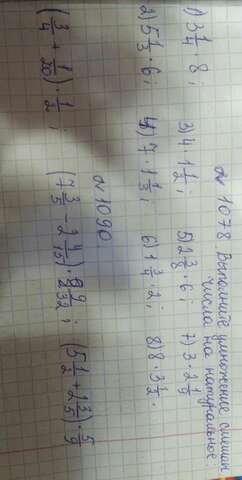 № 1078 Выполните умножение смешан
числа на натуральное:
1) 3 1/4 · 8;  3) 4 · 1 1/2;  5) 2 3/8 · 6;  7) 3 · 2 1/9
2) 5 1/3 · 6;  4) 7 · 1 1/3;  6) 1 3/4 · 2;  8) 8 · 3 1/2.
№ 1090
(3/4 + 1/20) · 1/2;  (7 3/5 - 2 4/15) · 9/32;  (5 1/2 + 2 3/5) · 5/9